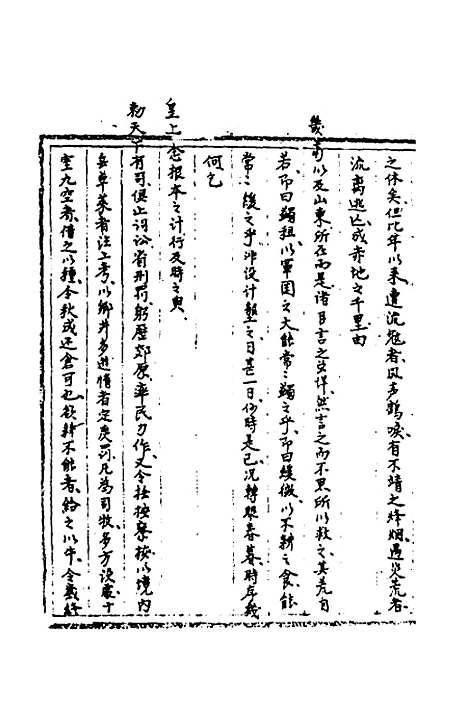 之休矣但比年以来遭流寇者风声鹤唳有不靖之烽烟遇灾荒者
流离逃亡成赤地之千里由
畿甸以及山東所在而是諸臣言之詳然言之而不思所以救之其荒自
若即曰蠲租以軍国之大能常〻蠲之乎即曰緩徵以不耕之食能
常〻緩之乎非设计墾之日甚一日伊時是已况轉眼春暮時年幾
何乞
皇上念根本之计行及時之典
勅天下有司俱止词讼省刑罰躬歷郊原率民力作又令按察按以境内
無草莱者注上考以鄉井多遊惰者定戾罚凡為司牧多方设處十
室九空者借之以種令秋成还倉可也欲耕不能者給之以牛令